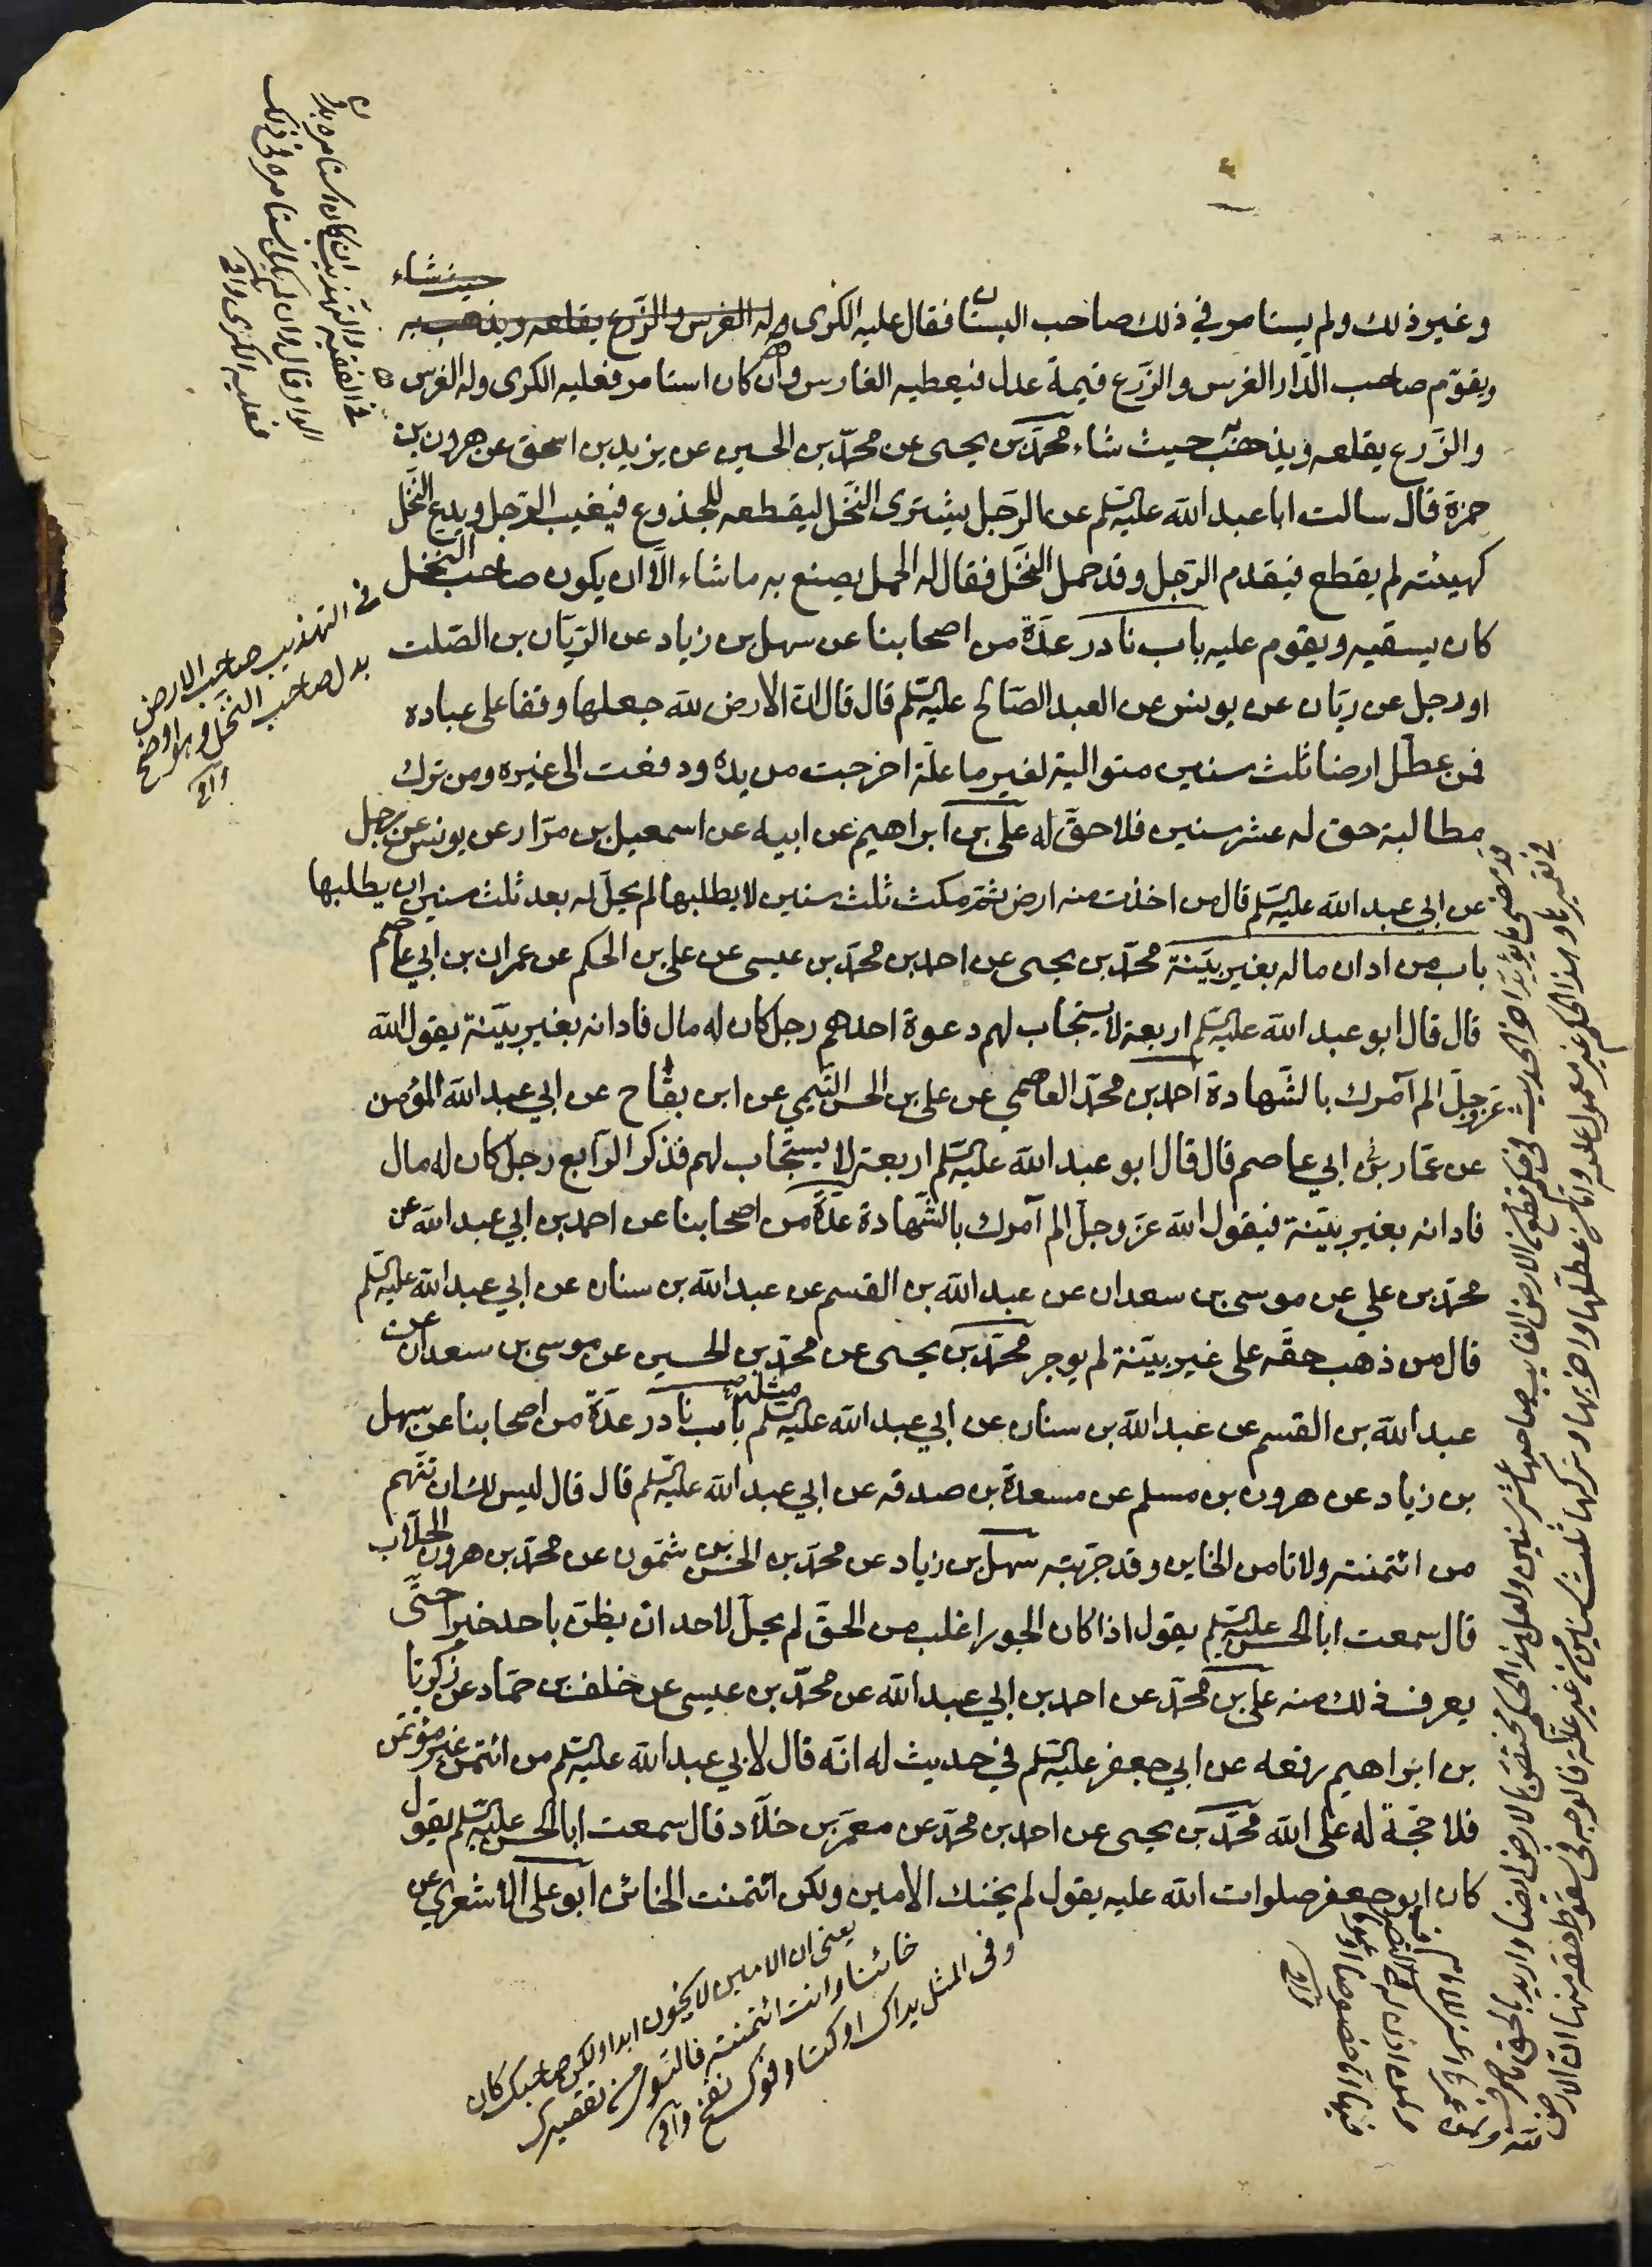 حيث شاء
وغير ذلك ولم يستامر في ذلك صاحب البستان فقال عليه الكرى وله الغرس والزرع يقلعه ويذهب به
ويقوّم صاحب الدّار الغرس والزّرع قيمة عدل فيعطيه الغارس وان كان استامر فعليه الكرى وله الغرس
والزّرع يقلعه ويذهب به حيث شاء محمّد بن يحيى عن محمّد بن الحسين عن يزيد بن اسحق عن هرون بن
حمزة قال سالت ابا عبد الله عليه السّلم عن الرّجل يشترى النّخل ليقطعه للجذوع فيغيب الرّجل ويدع النّخل
كهيئته لم يقطع فيقدم الرّجل وقد حمل النّخل فقال له الحمل يصنع به ما شاء الّا ان يكون صاحب النّخل
كان يسقيه ويقوم عليه باب نادر عدّة من اصحابنا عن سهل بن زياد عن الرّيّان بن الصّلت
او رجل عن ريّان عن يونس عن العبد الصّالح عليه السّلم قال قال انّ الارض لله جعلها وقفا على عباده
فمن عطّل ارضا ثلث سنين متوالية لغير ما علّة اخرجت من يده ودفعت الى غيره ومن ترك
مطالبة حق له عشر سنين فلا حقّ له علي بن ابراهيم عن ابيه عن اسمعيل بن مرّار عن يونس عن رجل
عن ابي عبد الله عليه السّلم قال من اخذت منه ارض ثمّ مكث ثلث سنين لا يطلبها لم يحلّ له بعد ثلث سنين ان يطلبها
باب من ادان ماله بغير بيّنة محمّد بن يحيى عن احمد بن محمّد بن عيسى عن علي بن الحكم عن عمران بن ابي عاصم
قال قال ابو عبد الله عليه السّلم اربعة لا يستجاب لهم دعوة احدهم رجل كان له مال فادانه بغير بيّنة يقول الله
عزّ وجلّ الم آمرك بالشّهادة احمد بن محمّد العاصمي عن علي بن الحسن التّيمي عن ابن بقّاح عن ابي عبد الله المؤمن
عن عمّار بن ابي عاصم قال قال ابو عبد الله عليه السّلم اربعة لا يستجاب لهم فذكر الرّابع رجل كان له مال
فادانه بغير بيّنة فيقول الله عزّ وجلّ الم آمرك بالشّهادة عدّة من اصحابنا عن احمد بن ابي عبد الله عن
محمّد بن علي عن موسى بن سعدان عن عبد الله بن القسم عن عبد الله بن سنان عن ابي عبد الله عليه السّلم
قال من ذهب حقّه على غير بيّنة لم يوجر محمّد بن يحيى عن محمّد بن الحسين عن موسى بن سعدان عن
عبد الله بن القسم عن عبد الله بن سنان عن ابي عبد الله عليه السّلم مثله باب نادر عدّة من اصحابنا عن سهل
بن زياد عن هرون بن مسلم عن مسعدة بن صدقه عن ابي عبد الله عليه السّلم قال قال ليس لك ان تتّهم
من ائتمنته ولا تامن الخاين وقد جرّبته سهل بن زياد عن محمّد بن الحسن بن شمّون عن محمّد بن هرون الجلّاب
قال سمعت ابا الحسن عليه السّلم يقول اذا كان الجور اغلب من الحقّ لم يحلّ لاحد ان يظنّ باحد خيرا حتّى
يعرف ذلك منه علي بن محمّد عن احمد بن ابي عبد الله عن محمّد بن عيسى عن خلف بن حمّاد عن زكريّا
بن ابراهيم رفعه عن ابي جعفر عليه السّلم في حديث له انّه قال لابي عبد الله عليه السّلم من ائتمن غير مؤتمن
فلا حجّة له على الله محمّد بن يحيى عن احمد بن محمّد عن معمّر بن خلّاد قال سمعت ابا الحسن عليه السّلم يقول
كان ابو جعفر صلوات الله عليه يقول لم يخنك الامين ولكن ائتمنت الخائن ابو علي الاشعري عن
في الفقيه والتهذيب ان كان استامره بدل
الواو قال وان لم يكن استامره في ذلك
فعليه الكرى وافي
في التهذيب صاحب الارض
بدل صاحب النّخل وهو اوضح
وافي
يعنى ان الامين لا يخون ابدا ولكن صاحبك كان
خائنا وانت ائتمنته فالتّوى من تقصيرك
وفى المثل يداك اوكتا وفوك نفخ وافي